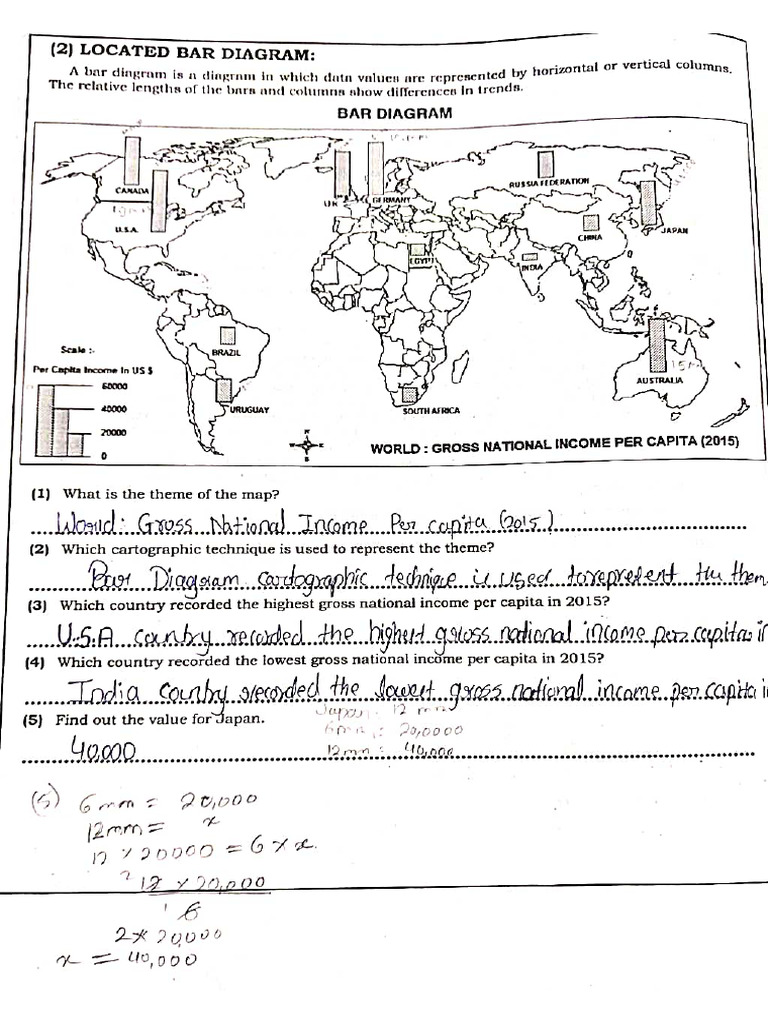 (2) LOCATED BAR DIAGRAM:
A bar diagram is a diagram in which data values are represented by horizontal or vertical columns.
The relative lengths of the bars and columns show differences in trends.
BAR DIAGRAM
CANADA
U.S.A.
UK
GERMANY
RUSSIA FEDERATION
CHINA
JAPAN
EGYPT
INDIA
BRAZIL
URUGUAY
SOUTH AFRICA
AUSTRALIA
Scale :-
Per Capita Income In US $
60000
40000
20000
0
N
W E
S
WORLD : GROSS NATIONAL INCOME PER CAPITA (2015)
(1) What is the theme of the map?
World: Gross National Income Per capita (2015)
(2) Which cartographic technique is used to represent the theme?
Bar Diagram cartographic technique is used to represent the them
(3) Which country recorded the highest gross national income per capita in 2015?
U.S.A country recorded the highest gross national income per capita in
(4) Which country recorded the lowest gross national income per capita in 2015?
India country recorded the lowest gross national income per capita i
(5) Find out the value for Japan.
Japan: 12 mm
6mm: 20,0000
40,000
12mm: 40,000
(5) 6mm = 20,000
12mm = x
12 × 20000 = 6 × x
2 12 × 20,000
1 6
2 × 20,000
x = 40,000